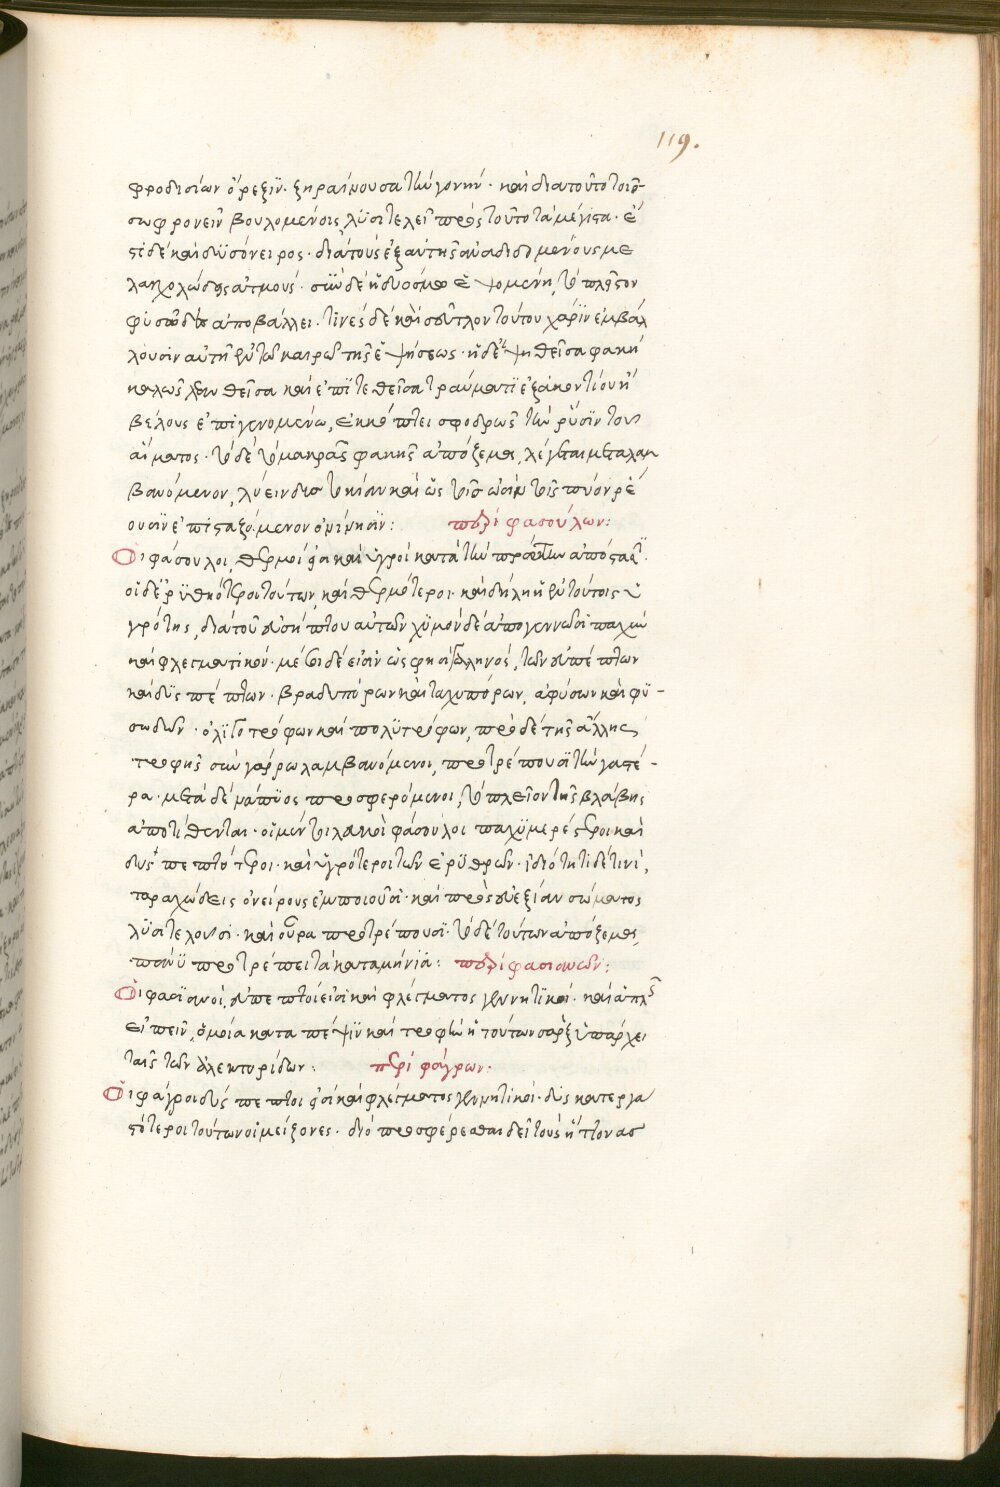 119.
φροδισίων ὄρεξϊν· ξηραίνουσα τὴν γονήν· καὶ διατοῦτο τοῖς
σωφρονεῖν βουλομένοις λϋσιτελεῖ πρὸς τοῦτο τὰ μέγιστα· ἔ
στὶ δὲ καὶ δϋσόνειρος· διὰ τοὺς ἐξ αὐτῆς ἀναδιδομένους με
λαγχολώδεις ἀτμούς· σὺν δὲ ἡδυόσμω ἑψομένη, τὸ πλεῖστον
φυσῶδες ἀποβάλλει· τινὲς δὲ καὶ σεῦτλον τούτου χάρϊν ἐμβάλ
λουσιν αὐτῇ ἐν τῶ καιρῶ τῆς ἑψήσεως· ἡ δὲ ἑψηθεῖσα φακῆ
καλῶς λειωθεῖσα καὶ ἐπϊτεθεῖσα τραύματϊ ἐξ ἀκοντίου ἢ
βέλους ἐπιγενομένω, ἐκκόπτει σφοδρῶς τὴν ῥύσϊν τοῦ
αἵματος· τὸ δὲ τῆς μακρᾶς φακῆς ἀπόζεμα, λέγεται μεταλαμ
βανόμενον, λύειν
οὖσϊν ἐπισταζόμενον ὀνίνησϊν: περὶ φασούλων:
Οἱ φάσουλοι, θερμοί εἰσι καὶ ὑγροὶ κατὰ τὴν πρώτην ἀπόστασϊν·
οἱ δὲ ἐρϋθρότεροι τούτων, καὶ θερμότεροι· καὶ δήλη ἡ ἐν τούτοις ὑ
γρότης, διὰ τοῦ εὐσήπτου αὐτῶν χϋμὸν δὲ ἀπογεννῶσι παχὺν
καὶ φλεγματικόν· μέσοι δέ εἰσιν ὥς φησι γαληνός, τῶν εὐπέπτων
καὶ δϋσπέπτων· βραδυπόρων καὶ ταχυπόρων, ἀφύσων καὶ φϋ-
σωδῶν· ὀλϊγοτρόφων καὶ πολϋτρόφων, πρὸ δὲ τῆς ἄλλης
τροφῆς σὺν γάρρω λαμβανόμενοι, προτρέπουσϊ τὴν γαστέ-
ρα· μετὰ δὲ νάπϋος προσφερόμενοι, τὸ πλεῖον τῆς βλάβης
ἀποτίθενται· οἱ μέντοι λευκοὶ φάσουλοι παχϋμερέστεροι καὶ
δυσπεπτότεροι· καὶ ὑγρότεροι τῶν ἐρϋθρῶν· ἰδιότητι δέ τινι,
ταραχώδεις ὀνείρους ἐμποιοῦσϊ· καὶ πρὸς εὐεξίαν σώματος
λϋσιτελοῦσι· καὶ οὖρα προτρέπουσϊ· τὸ δὲ τούτων ἀπόζεμα,
πάνϋ προτρέπει τὰ καταμήνια: περὶ φασιανῶν:
Οἱ φασϊανοί, εὔπεπτοί εἰσι καὶ φλέγματος γεννητϊκοί· καὶ ἁπλῶς
εἰπεῖν, ὁμοία κατα πέψϊν καὶ τροφὴν ἡ τούτων σαρξ ὑπάρχει
ταῖς τῶν ἀλεκτορίδων: περὶ φάγρων:
Οἱ φάγροι δύσπεπτοί εἰσι καὶ φλέγματος γεννητικοί· δυσκατεργα
στότεροι τούτων οἱ μείζονες· διὸ προσφέρεσθαι δεῖ τοὺς ἥττονας